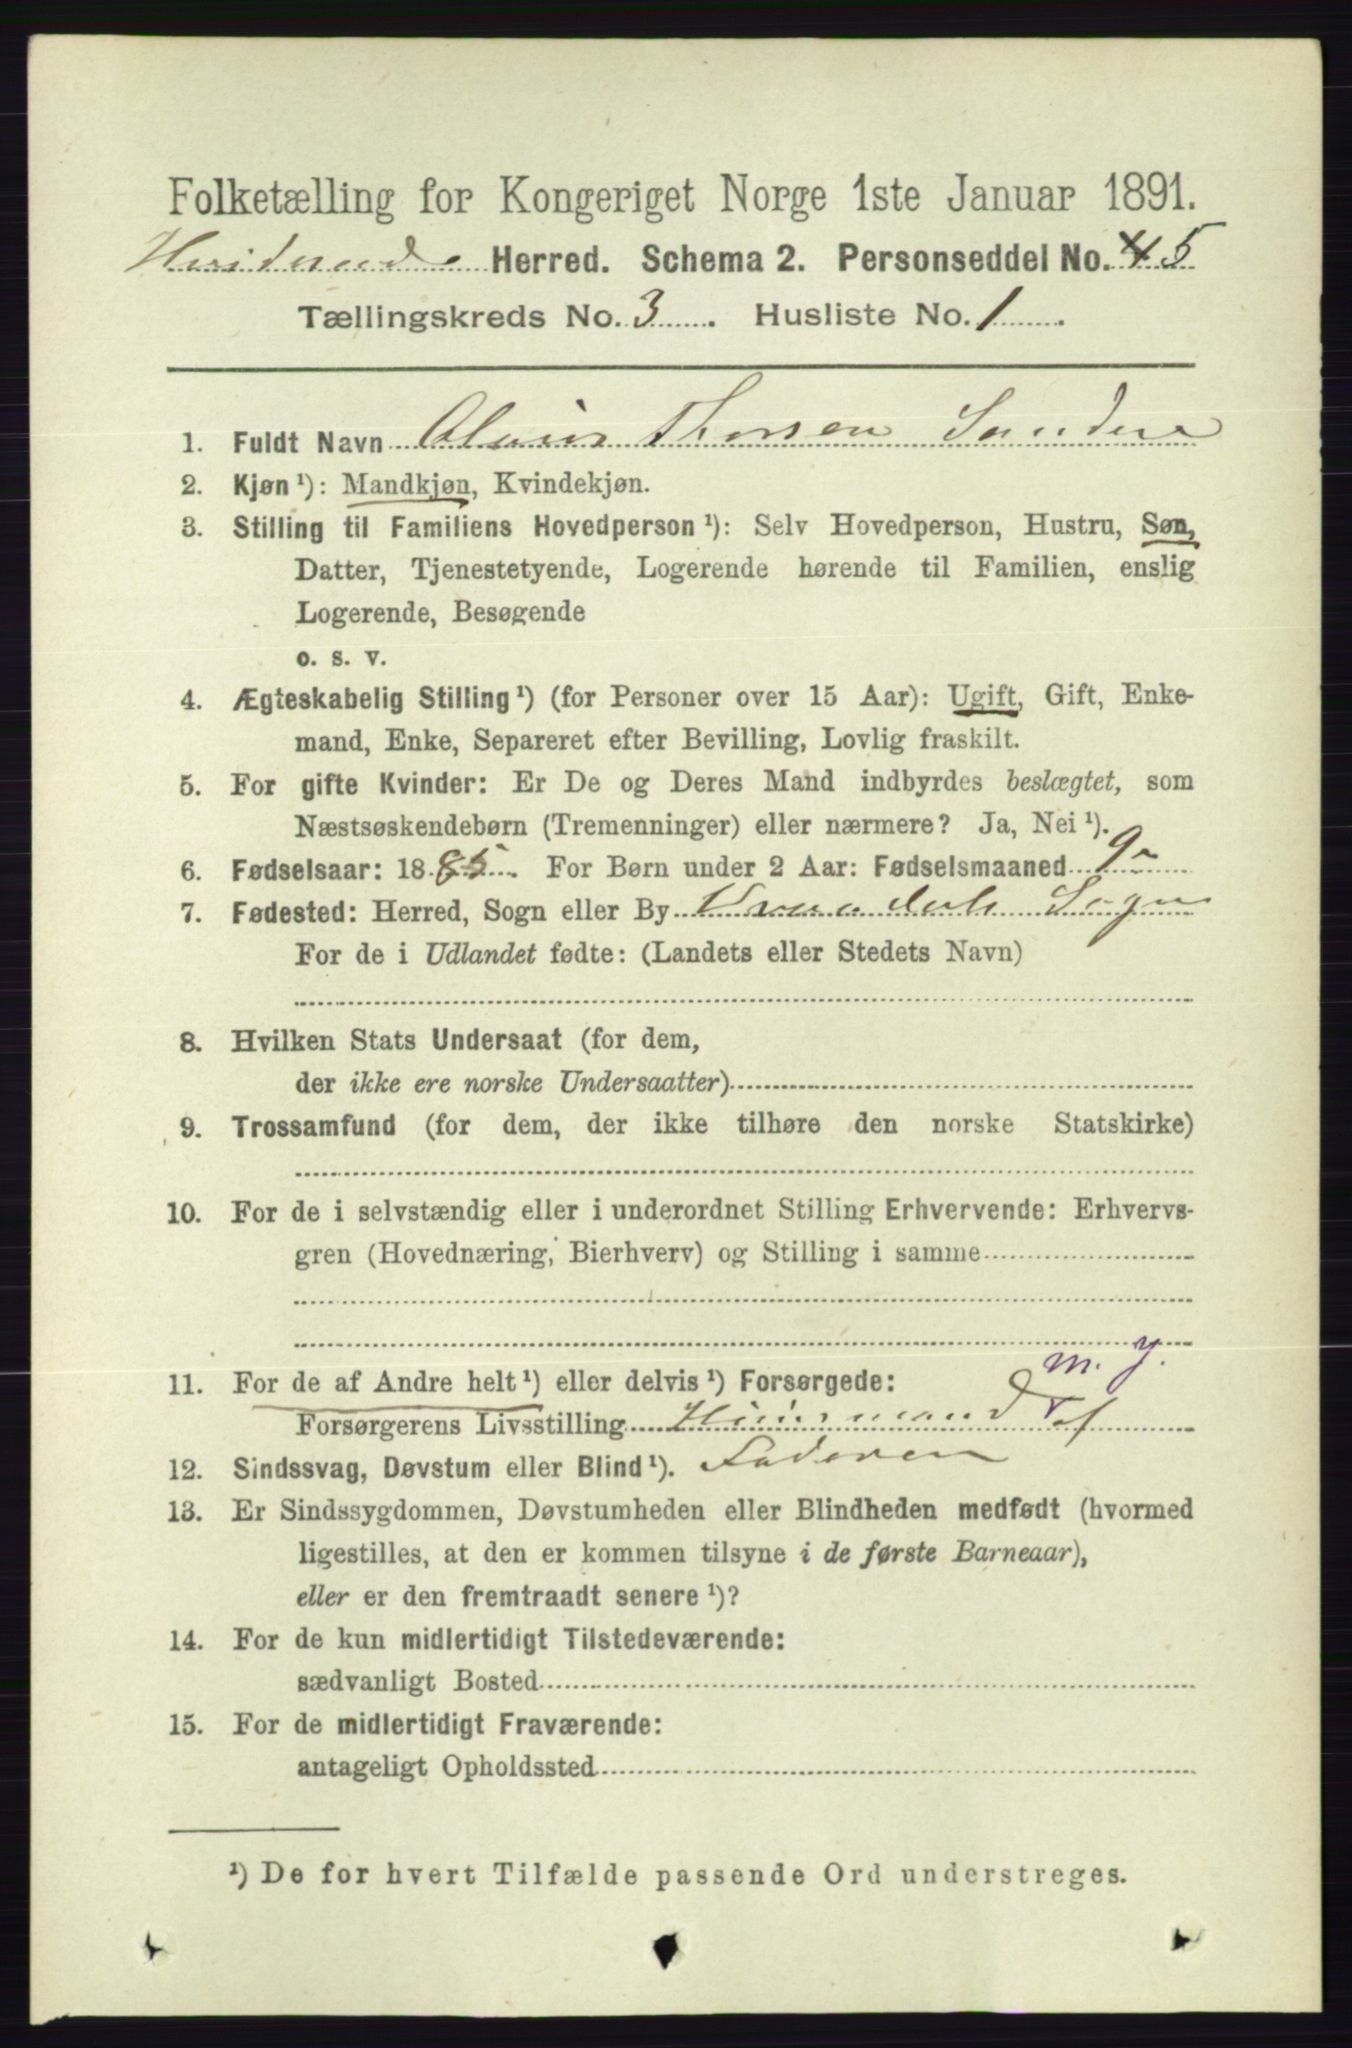 Folketælling for Kongeriget Norge 1ste Januar 1891.
Hvideseids Herred. Schema 2. Personseddel No. 5
Tællingskreds No. 3. Husliste No. 1.
1. Fuldt Navn Thorsen
2. Kjøn ¹): Mandkjøn, Kvindekjøn.
3. Stilling til Familiens Hovedperson ¹): Selv Hovedperson, Hustru, Søn,
Datter, Tjenestetyende, Logerende hørende til Familien, enslig
Logerende, Besøgende
o. s. v.
4. Ægteskabelig Stilling ¹) (for Personer over 15 Aar): Ugift, Gift, Enke-
mand, Enke, Separeret efter Bevilling, Lovlig fraskilt.
5. For gifte Kvinder: Er De og Deres Mand indbyrdes beslægtet, som
Næstsøskendebørn (Tremenninger) eller nærmere? Ja, Nei ¹).
6. Fødselsaar: 1885. For Børn under 2 Aar: Fødselsmaaned
7. Fødested: Herred, Sogn eller By Vraadals Sogn
For de i Udlandet fødte: (Landets eller Stedets Navn)
8. Hvilken Stats Undersaat (for dem,
der ikke ere norske Undersaatter)
9. Trossamfund (for dem, der ikke tilhøre den norske Statskirke)
10. For de i selvstændig eller i underordnet Stilling Erhvervende: Erhvervs-
gren (Hovednæring, Bierhverv) og Stilling i samme
m. J.
11. For de af Andre helt ¹) eller delvis ¹) Forsørgede:
Forsørgerens Livsstilling Huusmand af
12. Sindssvag, Døvstum eller Blind ¹). Faderen
13. Er Sindssygdommen, Døvstumheden eller Blindheden medfødt (hvormed
ligestilles, at den er kommen tilsyne i de første Barneaar),
eller er den fremtraadt senere ¹)?
14. For de kun midlertidigt Tilstedeværende:
sædvanligt Bosted
15. For de midlertidigt Fraværende:
antageligt Opholdssted
¹) De for hvert Tilfælde passende Ord understreges.